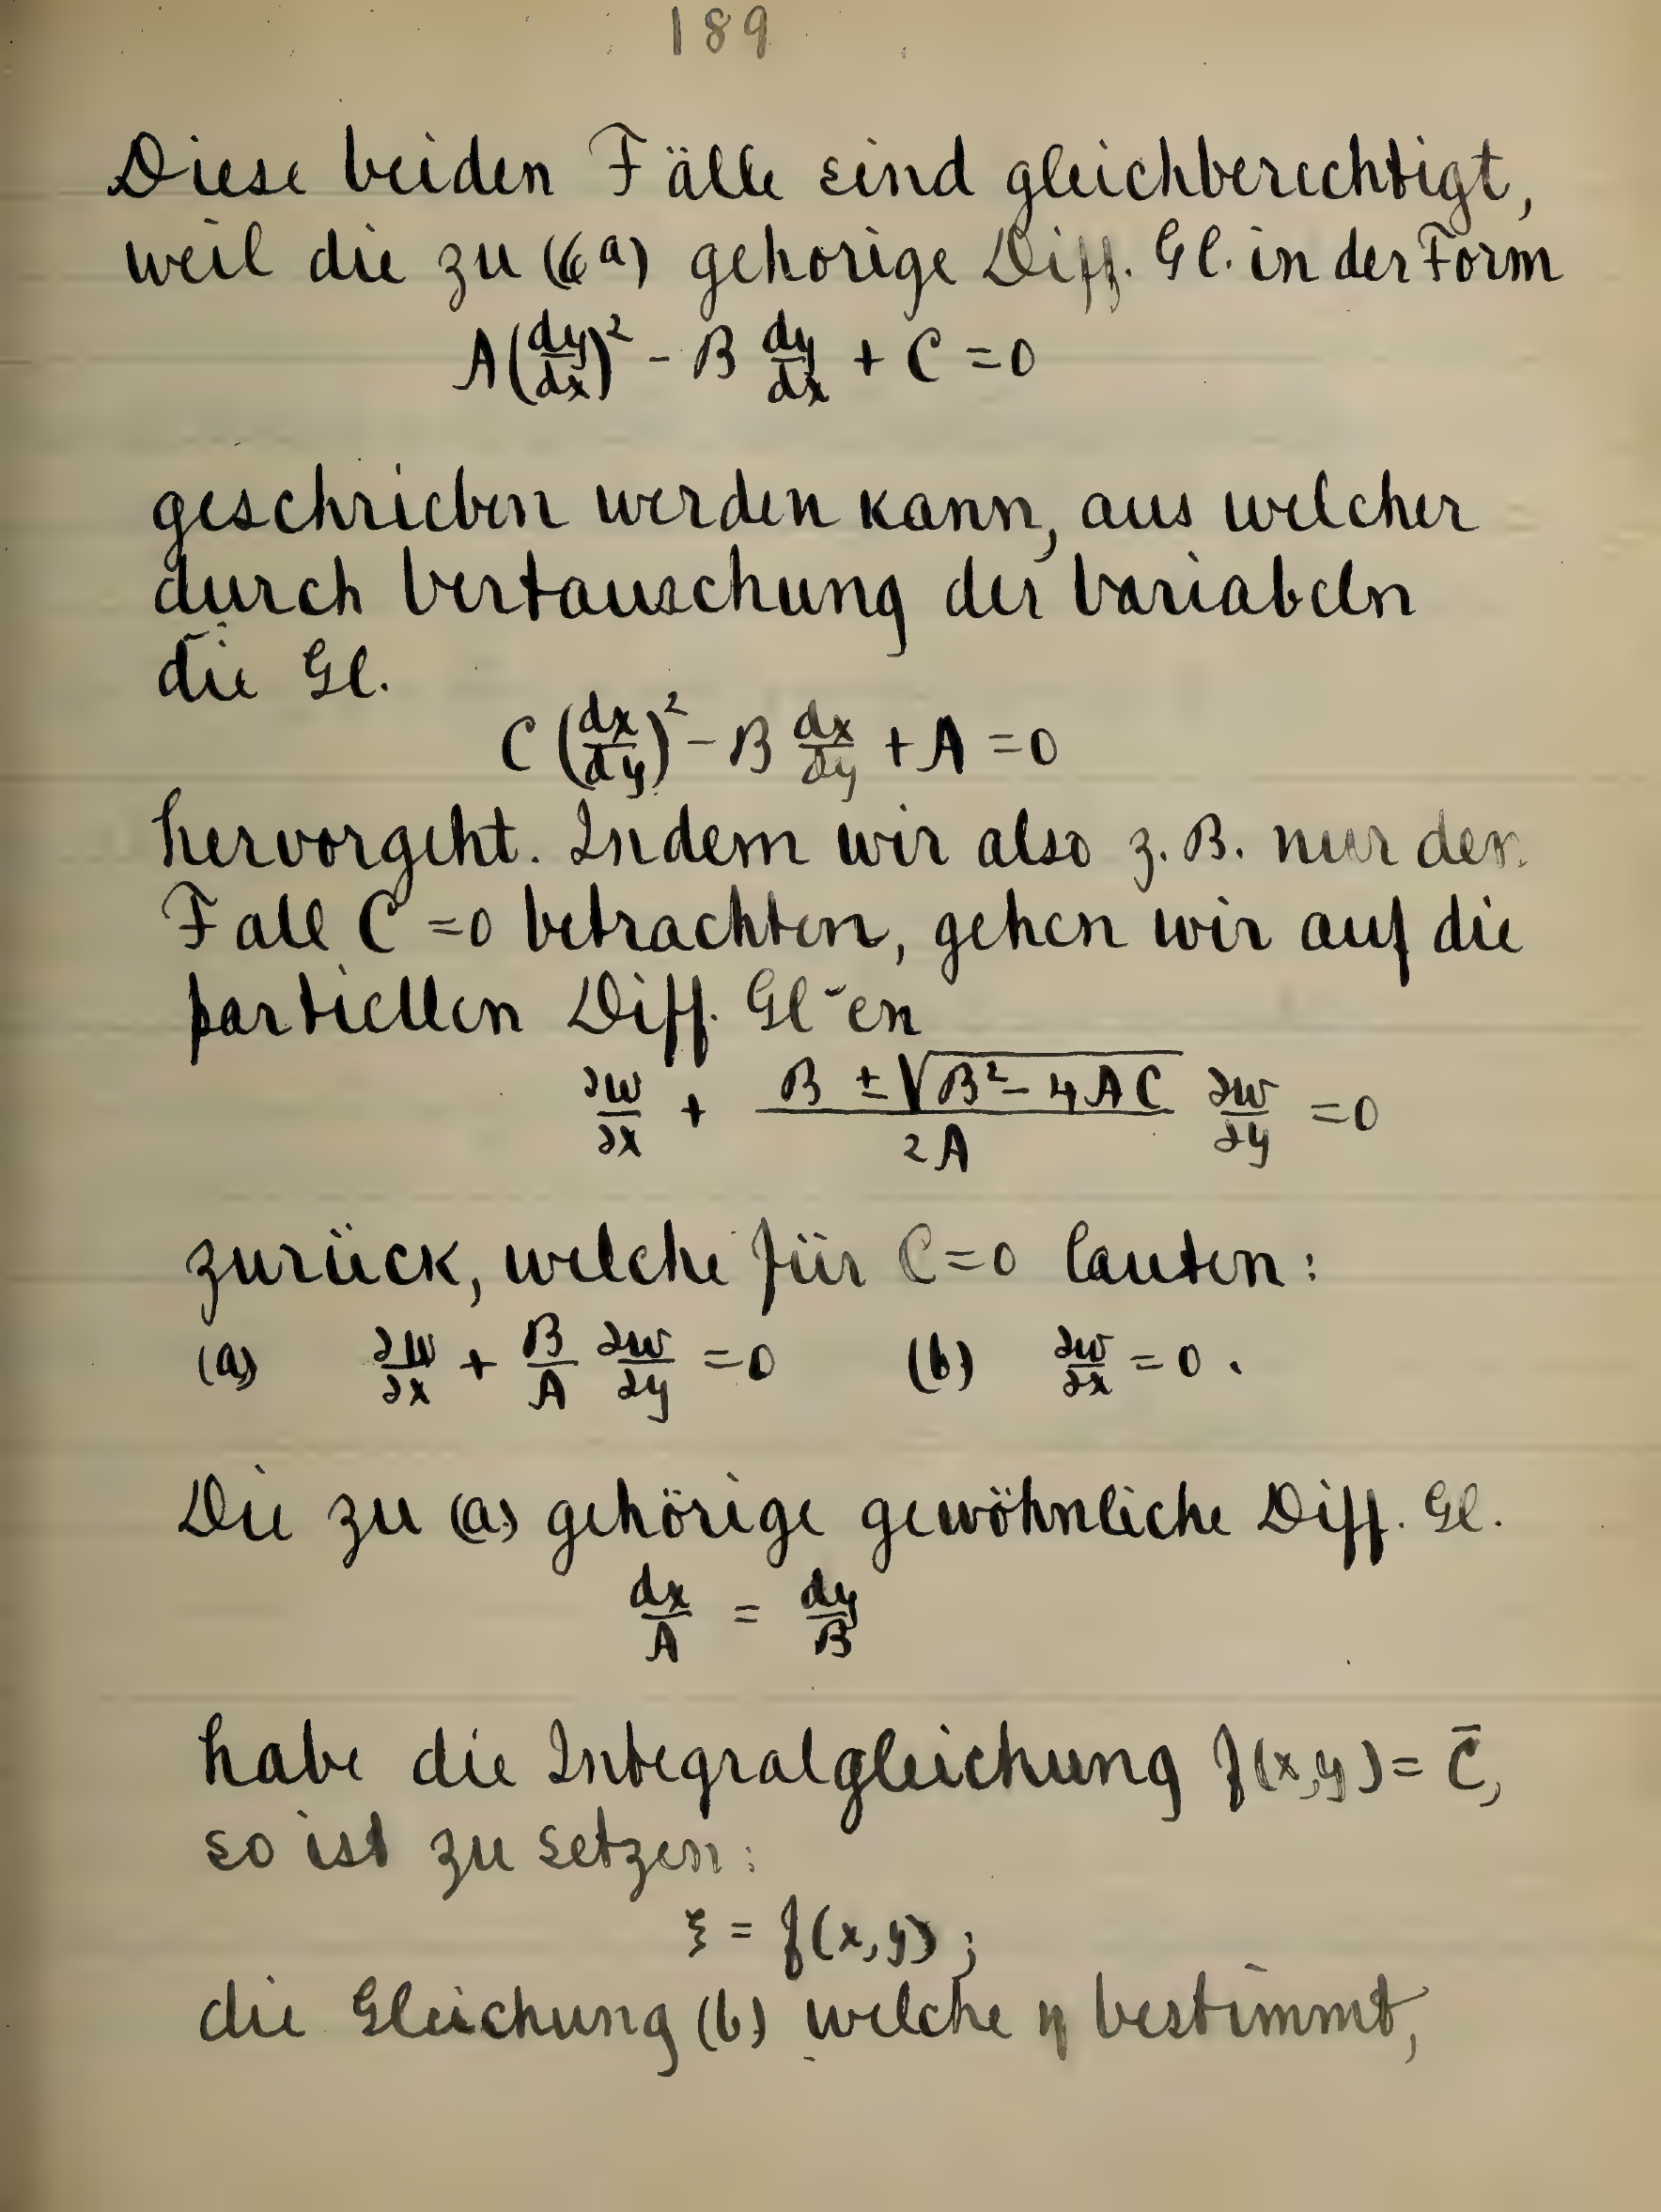 189
Diese beiden Fälle sind gleichberechtigt,
weil die zu (6a) gehorige Diff. Gl. in der Form
A(dy/dx)² - B dy/dx + C = 0
geschrieben werden kann, aus welcher
durch Vertauschung der Variabeln
die Gl.
C(dx/dy)² - B dx/dy + A = 0
hervorgeht. Indem wir also z. B. nur den
Fall C = 0 betrachten, gehen wir auf die
partiellen Diff. Gl-en
∂w/∂x + (B ± √(B² - 4AC))/2A ∂w/∂y = 0
zurück, welche für C = 0 lauten:
(a) ∂w/∂x + B/A ∂w/∂y = 0 (b) ∂w/∂x = 0.
Die zu (a) gehörige gewöhnliche Diff. Gl.
dx/A = dy/B
habe die Integralgleichung f(x,y) = C̄,
so ist zu setzen:
ξ = f(x,y);
die Gleichung (b) welche η bestimmt,